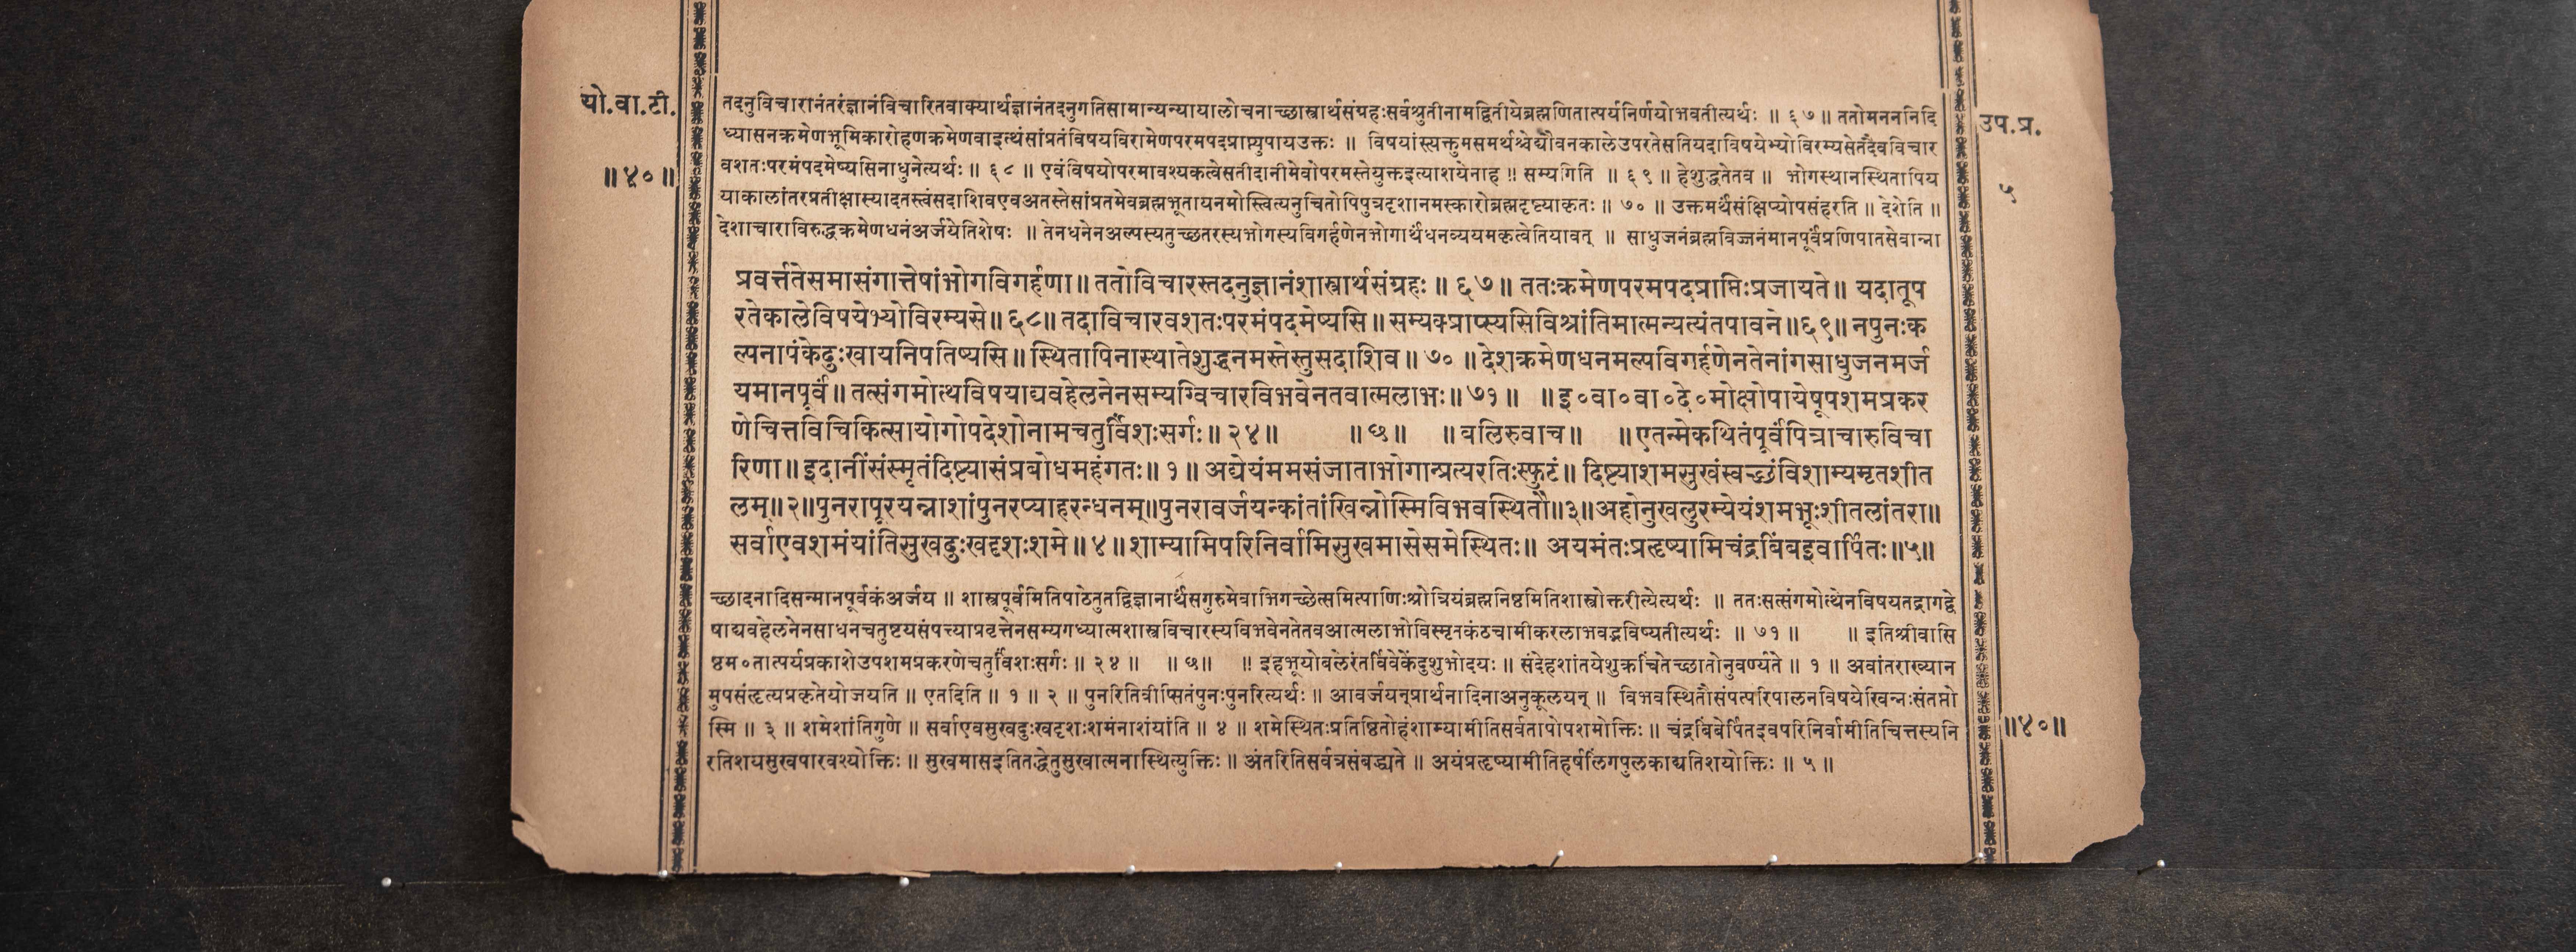 यो.वा.टी.
॥४०॥
उप.प्र.
५
तदनुविचारानंतरंज्ञानंविचारितवाक्यार्थज्ञानंतदनुगतिसामान्यन्यायालोचनाच्छास्त्रार्थसंग्रहःसर्वश्रुतीनामद्वितीयेब्रह्मणितात्पर्यनिर्णयोभवतीत्यर्थः ॥ ६७ ॥ ततोमनननिदि
ध्यासनक्रमेणभूमिकारोहणक्रमेणवाइत्थंसांप्रतंविषयविरामेणपरमपदप्राप्त्युपायउक्तः ॥ विषयांस्त्यक्तुमसमर्थश्चेद्यौवनकालेउपरतेसतियदाविषयेभ्योविरम्यसेतदैवविचार
वशतःपरमंपदमेष्यसिनाधुनेत्यर्थः ॥ ६८ ॥ एवंविषयोपरमावश्यकत्वेसतीदानीमेवोपरमस्तेयुक्तइत्याशयेनाह ॥ सम्यगिति ॥ ६९ ॥ हेशुद्धतेतव ॥ भोगस्थानस्थितापिय
याकालांतरप्रतीक्षास्यादतस्त्वंसदाशिवएवअतस्तेसांप्रतमेवब्रह्मभूतायनमोस्त्वित्यनुचितोपिपुत्रदृशानमस्कारोब्रह्मदृष्ट्याकृतः ॥ ७० ॥ उक्तमर्थंसंक्षिप्योपसंहरति ॥ देशेति ॥
देशाचाराविरुद्धक्रमेणधनंअर्जयेतिशेषः ॥ तेनधनेनअल्पस्यतुच्छतरस्यभोगस्यविगर्हणेनभोगार्थंधनव्ययमकृत्वेतियावत् ॥ साधुजनंब्रह्मविज्जनंमानपूर्वंप्रणिपातसेवान्ना
प्रवर्त्ततेसमासंगात्तेषांभोगविगर्हणा ॥ ततोविचारस्तदनुज्ञानंशास्त्रार्थसंग्रहः ॥ ६७ ॥ ततःक्रमेणपरमपदप्राप्तिःप्रजायते ॥ यदातूप
रतेकालेविषयेभ्योविरम्यसे ॥ ६८ ॥ तदाविचारवशतःपरमंपदमेष्यसि ॥ सम्यक्प्राप्स्यसिविश्रांतिमात्मन्यत्यंतपावने ॥ ६९ ॥ नपुनःक
ल्पनापंकेदुःखायनिपतिष्यसि ॥ स्थितापिनास्थातेशुद्धनमस्तेस्तुसदाशिव ॥ ७० ॥ देशक्रमेणधनमल्पविगर्हणेनतेनांगसाधुजनमर्ज
यमानपूर्वं ॥ तत्संगमोत्थविषयाद्यवहेलनेनसम्यग्विचारविभवेनतवात्मलाभः ॥ ७१ ॥ ॥ इ०वा०वा०दे०मोक्षोपायेषूपशमप्रकर
णेचित्तविचिकित्सायोगोपदेशोनामचतुर्विंशःसर्गः ॥ २४ ॥ ॥ छ ॥ ॥ बलिरुवाच ॥ ॥ एतन्मेकथितंपूर्वंपित्राचारुविचा
रिणा ॥ इदानींसंस्मृतंदिष्ट्यासंप्रबोधमहंगतः ॥ १ ॥ अद्येयंममसंजाताभोगान्प्रत्यरतिःस्फुटं ॥ दिष्ट्याशमसुखंस्वच्छंविशाम्यमृतशीत
लम् ॥ २ ॥ पुनरापूरयन्नाशांपुनरप्याहरन्धनम् ॥ पुनरावर्जयन्कांतांखिन्नोस्मिविभवस्थितौ ॥ ३ ॥ अहोनुखलुरम्येयंशमभूःशीतलांतरा ॥
सर्वाएवशमंयांतिसुखदुःखदृशःशमे ॥ ४ ॥ शाम्यामिपरिनिर्वामिसुखमासेसमेस्थितः ॥ अयमंतःप्रहृष्यामिचंद्रबिंबइवार्पितः ॥ ५ ॥
च्छादनादिसन्मानपूर्वकंअर्जय ॥ शास्त्रपूर्वमितिपाठेतुतद्विज्ञानार्थंसगुरुमेवाभिगच्छेत्समित्पाणिःश्रोत्रियंब्रह्मनिष्ठमितिशास्त्रोक्तरीत्येत्यर्थः ॥ ततःसत्संगमोत्थेनविषयतद्रागद्वे
षाद्यवहेलनेनसाधनचतुष्टयसंपत्त्याप्रवृत्तेनसम्यगध्यात्मशास्त्रविचारस्यविभवेनतेतवआत्मलाभोविस्मृतकंठचामीकरलाभवद्भविष्यतीत्यर्थः ॥ ७१ ॥ ॥ इतिश्रीवासि
ष्ठम०तात्पर्यप्रकाशेउपशमप्रकरणेचतुर्विंशःसर्गः ॥ २४ ॥ ॥ छ ॥ ॥ इहभूयोबलेरंतर्विवेकेंदुशुभोदयः ॥ संदेहशांतयेशुक्रचिंतेच्छातोनुवर्ण्यते ॥ १ ॥ अवांतराख्यान
मुपसंहृत्यप्रकृतेयोजयति ॥ एतदिति ॥ १ ॥ २ ॥ पुनरितिवीप्सितंपुनःपुनरित्यर्थः ॥ आवर्जयन्प्रार्थनादिनाअनुकूलयन् ॥ विभवस्थितौसंपत्परिपालनविषयेखिन्नःसंतप्तो
स्मि ॥ ३ ॥ शमेशांतिगुणे ॥ सर्वाएवसुखदुःखदृशःशमंनाशंयांति ॥ ४ ॥ शमेस्थितःप्रतिष्ठितोहंशाम्यामीतिसर्वतापोपशमोक्तिः ॥ चंद्रबिंबेर्पितइवपरिनिर्वामीतिचित्तस्यनि
रतिशयसुखपारवश्योक्तिः ॥ सुखमासइतितद्धेतुसुखात्मनास्थित्युक्तिः ॥ अंतरितिसर्वत्रसंबद्ध्यते ॥ अयंप्रहृष्यामीतिहर्षलिंगपुलकाद्यतिशयोक्तिः ॥ ५ ॥
॥४०॥